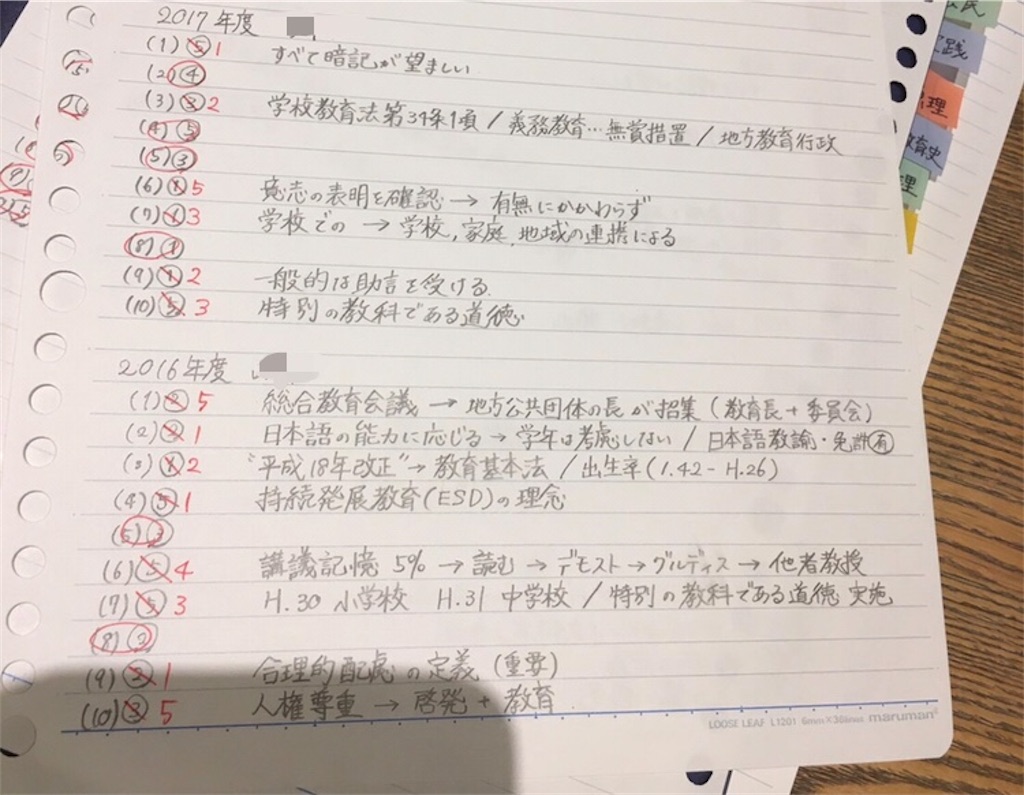 2017年度
(1) ⑤ 1 すべて暗記が望ましい
(2) ④
(3) ③ 2 学校教育法第34条1項 / 義務教育…無賞措置 / 地方教育行政
(4) ⑤
(5) ③
(6) ① 5 意志の表明を確認 → 有無にかかわらず
(7) ① 3 学校での → 学校,家庭,地域の連携による
(8) ①
(9) ① 2 一般的な助言を受ける
(10) ⑤ 3 特別の教科である道徳
2016年度
(1) ② 5 総合教育会議 → 地方公共団体の長が招集 (教育長+委員会)
(2) ② 1 日本語の能力に応じる → 学年は考慮しない / 日本語教諭・免許有
(3) ① 2 "平成18年改正" → 教育基本法 / 出生率(1.42-H.26)
(4) ⑤ 1 持続発展教育(ESD)の理念
(5) ③
(6) ⑤ 4 講議記憶 5% → 読む → デモスト → グルディス → 他者教授
(7) ⑤ 3 H.30 小学校 H.31 中学校 / 特別の教科である道徳 実施
(8) ③
(9) ② 1 合理的配慮の定義 (重要)
(10) ③ 5 人権尊重 → 啓発 + 教育
LOOSE LEAF L1201 6mm×36lines maruman
民
践
理
教育史
理